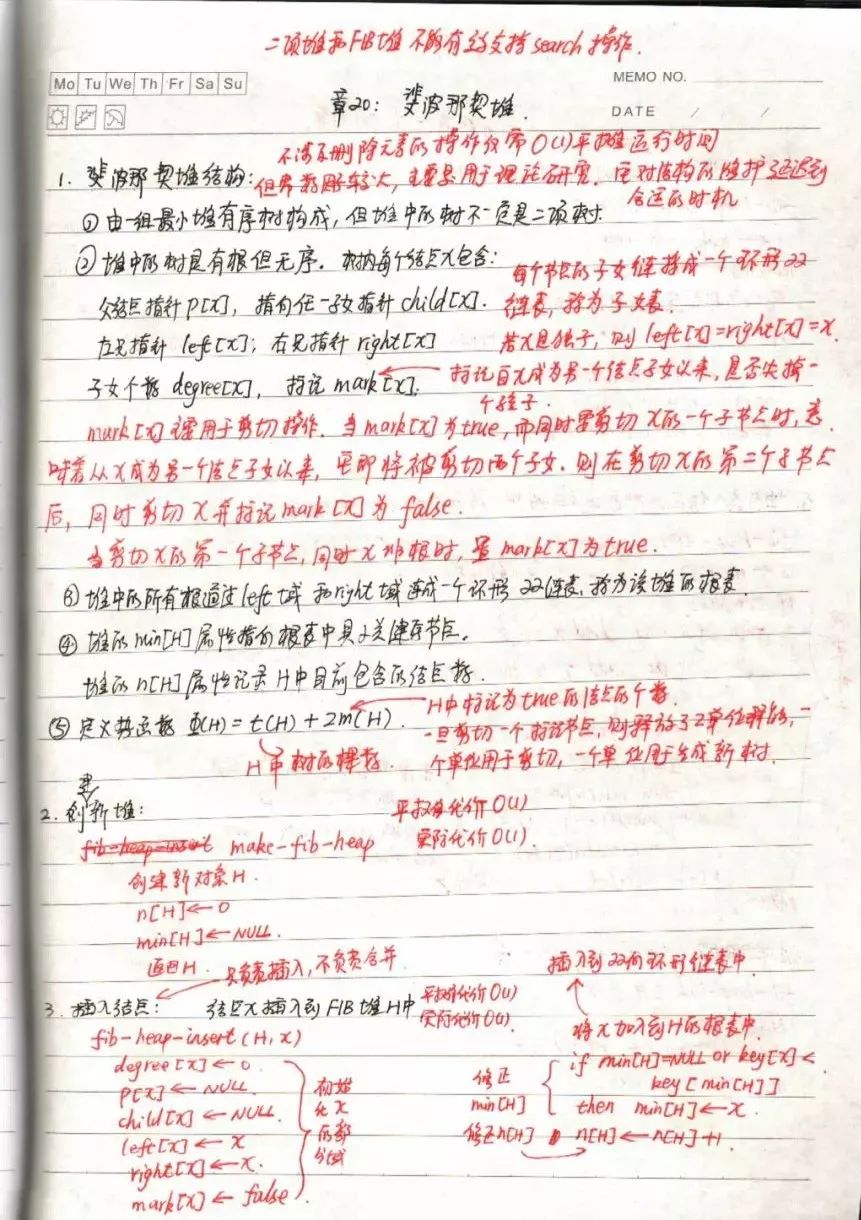 二项堆和FIB堆不能有效支持search操作.
Mo Tu We Th Fr Sa Su
MEMO NO.
DATE / /
章20: 斐波那契堆.
不涉及删除元素的操作仅需O(1)平摊运行时间
1. 斐波那契堆结构: 但常数因子较大, 主要是用于理论研究. 它对结构的维护延迟到
合适的时机
①由一组最小堆有序树构成, 但堆中的树不一定是二项树.
②堆中的树是有根但无序. 树内每个结点x包含:
每个节点的子女链接成一个环形双
父结点指针p[x], 指向任一子女指针child[x].
链表, 称为子女表.
左兄指针 left[x]; 右兄指针 right[x]
若x是独子, 则 left[x]=right[x]=x.
子女个数 degree[x], 标记 mark[x].
标记自x成为另一个结点子女以来, 是否失掉一
个孩子.
mark[x]主要用于剪切操作. 当mark[x]为true, 而同时要剪切x的一个子节点时, 意
味着从x成为另一个结点子女以来, 它即将被剪切两个子女. 则在剪切x的第二个子节点
后, 同时剪切x并标记mark[x]为false.
当剪切x的第一个子节点, 同时x非根时, 置mark[x]为true.
③堆中的所有根通过left域和right域连成一个环形双链表, 称为该堆的根表.
④堆的min[H]属性指向根表中具最小关键字节点.
堆的n[H]属性记录H中目前包含的结点数.
⑤定义势函数 Φ(H)=t(H)+2m(H).
H中标记为true的结点的个数.
一旦剪切一个标记节点, 则释放了2单位势能, 一
个单位用于剪切, 一个单位用于生成新树.
H中树的棵数.
2. 创建新堆:
平摊代价O(1)
实际代价O(1)
fib-heap-insert make-fib-heap
创建新对象H.
n[H]←0
min[H]←NULL.
返回H.
只负责插入, 不负责合并
3. 插入结点: 结点x插入到FIB堆H中
平摊代价O(1)
实际代价O(1).
fib-heap-insert(H,x)
degree[x]←0.
p[x]←NULL.
child[x]←NULL.
left[x]←x
right[x]←x.
mark[x]←false.
初始
化x
的部
分域
插入到双向环形链表中.
将x加入到H的根表中.
修正
min[H]
if min[H]=NULL or key[x]<
key[min[H]]
then min[H]←x.
修正n[H] n[H]←n[H]+1.